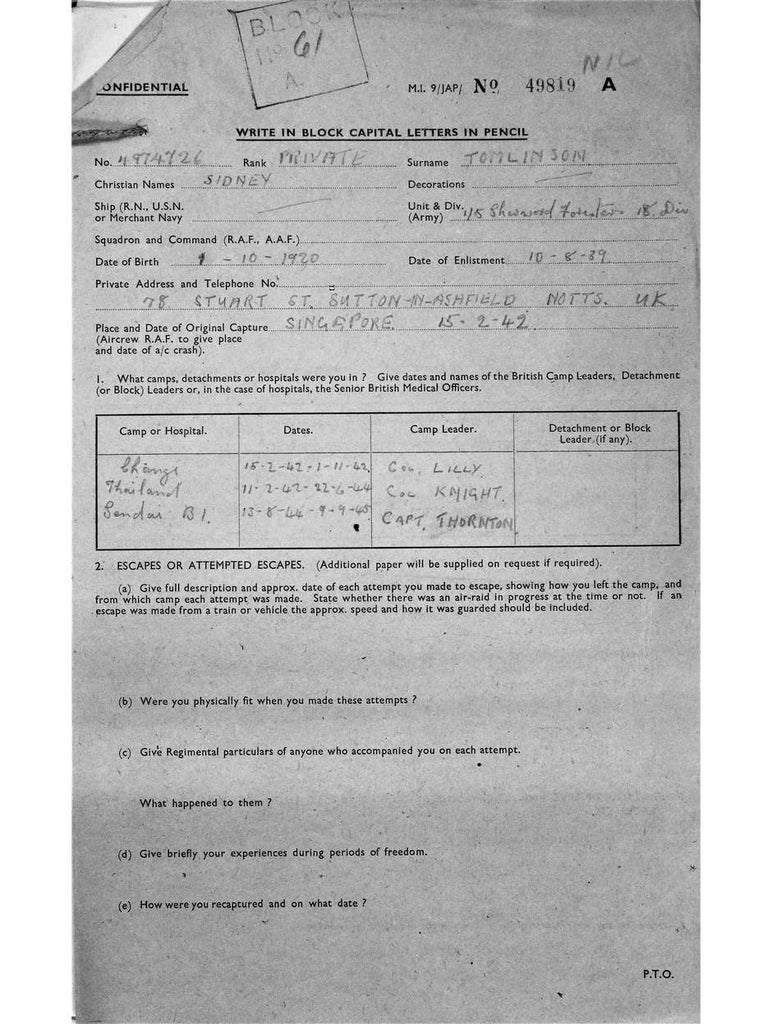 BLOCK
No 61
A.
NIL
ONFIDENTIAL
M.I. 9/JAP/ No 49819 A
WRITE IN BLOCK CAPITAL LETTERS IN PENCIL
No. 4974726 Rank PRIVATE Surname TOMLINSON
Christian Names SIDNEY Decorations
Ship (R.N., U.S.N. or Merchant Navy
Unit & Div. (Army) 1/5 Sherwood Foresters 18 Div
Squadron and Command (R.A.F., A.A.F.)
Date of Birth 1-10-1920 Date of Enlistment 10-8-39
Private Address and Telephone No.
78 STUART ST. SUTTON-IN-ASHFIELD NOTTS. UK
Place and Date of Original Capture SINGAPORE. 15-2-42
(Aircrew R.A.F. to give place
and date of a/c crash).
1. What camps, detachments or hospitals were you in ? Give dates and names of the British Camp Leaders, Detachment
(or Block) Leaders or, in the case of hospitals, the Senior British Medical Officers.
Camp or Hospital. Dates. Camp Leader. Detachment or Block Leader (if any).
Changi 15-2-42-1-11-42 Col. LILLY
Thailand 11-2-42-22-6-44 Col KNIGHT.
Sendai B1. 13-8-44-9-9-45 CAPT. THORNTON
2. ESCAPES OR ATTEMPTED ESCAPES. (Additional paper will be supplied on request if required).
(a) Give full description and approx. date of each attempt you made to escape, showing how you left the camp, and
from which camp each attempt was made. State whether there was an air-raid in progress at the time or not. If an
escape was made from a train or vehicle the approx. speed and how it was guarded should be included.
(b) Were you physically fit when you made these attempts ?
(c) Give Regimental particulars of anyone who accompanied you on each attempt.
What happened to them ?
(d) Give briefly your experiences during periods of freedom.
(e) How were you recaptured and on what date ?
P.T.O.